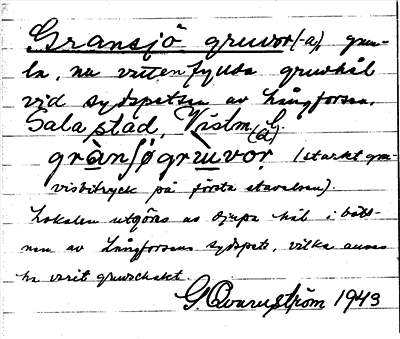 Gransjö gruvor (-a), gam-
la, nu vattenfyllda gruvhål
vid sydspetsen av Långforsen.
Sala stad, Vstm.
grànsjøgrùvor (a) (starkt gra-
vistryck på första stavelsen).
Lokalen utgöras av djupa hål i bott-
nen av Långforsens sydspets, vilka anses
ha varit gruvschakt.
G. Qvarnström 1943